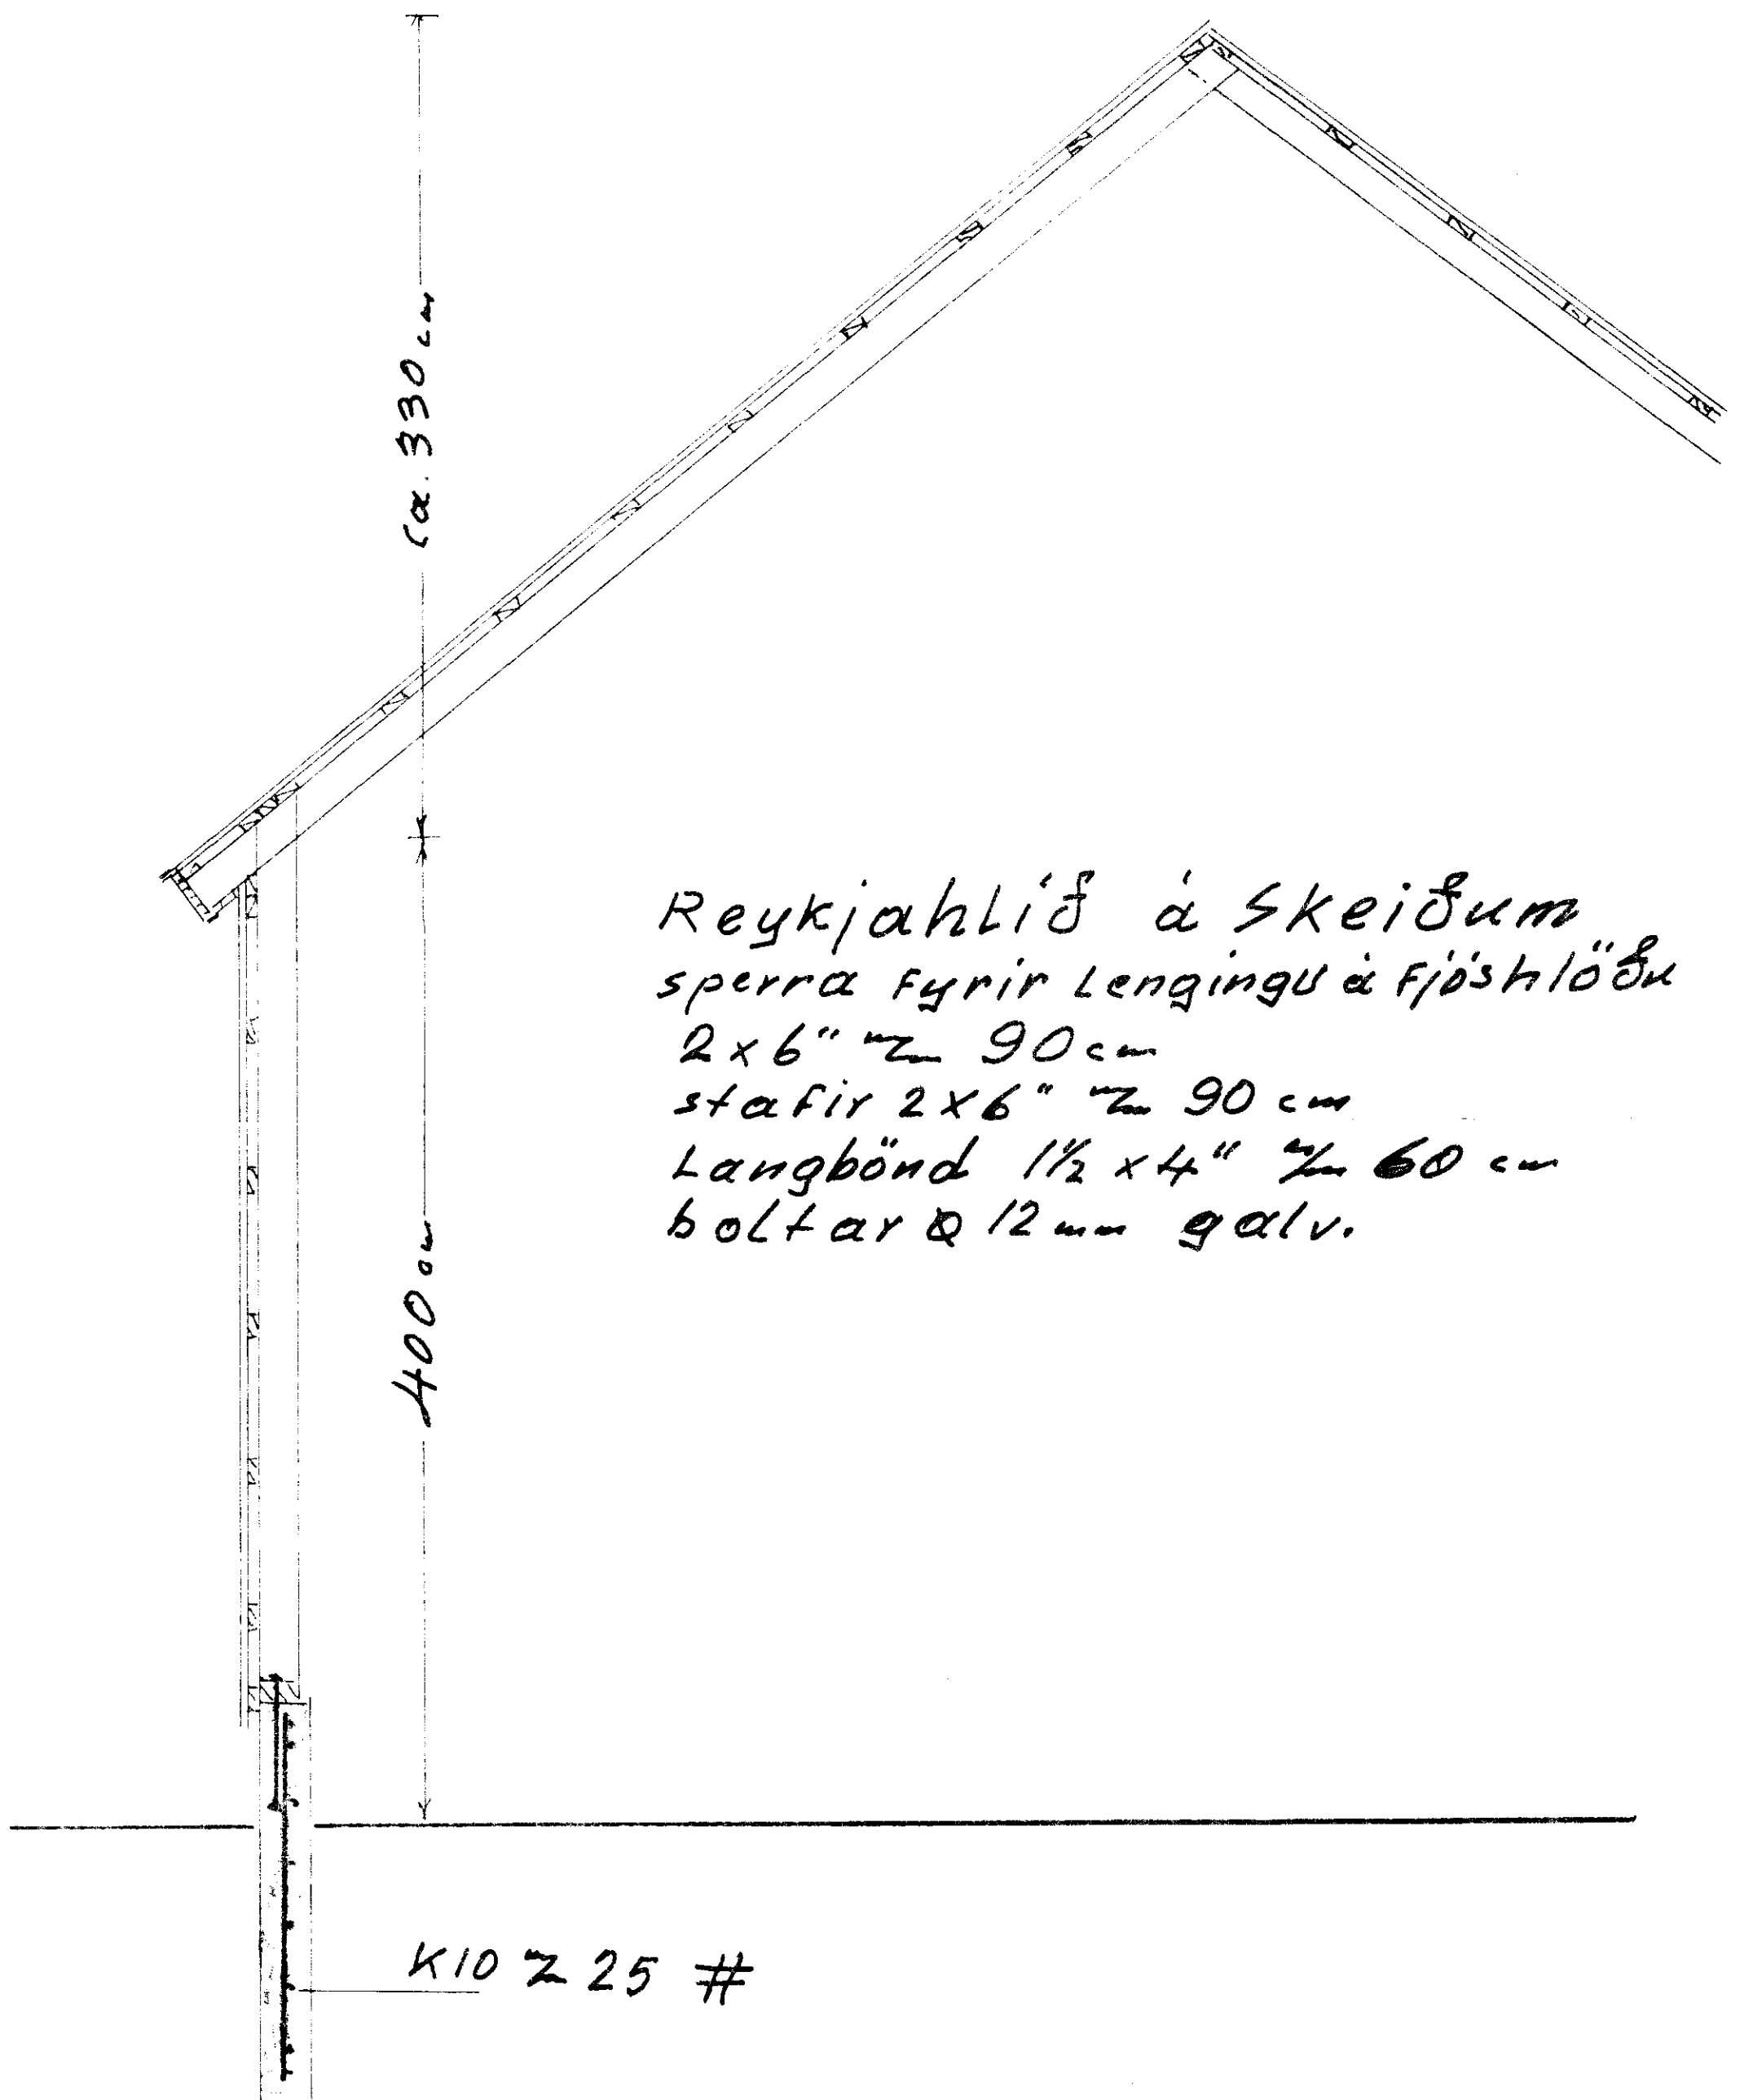 ca. 330 cm
Reykjahlíð á Skeiðum
sperra fyrir lengingu á fjóshlöðu
2 x 6" m/m 90 cm
stafir 2 x 6" m/m 90 cm
Langbönd 1½ x 4" m/m 60 cm
boltar Ø 12 mm galv.
400 cm
K10 m/m 25 #